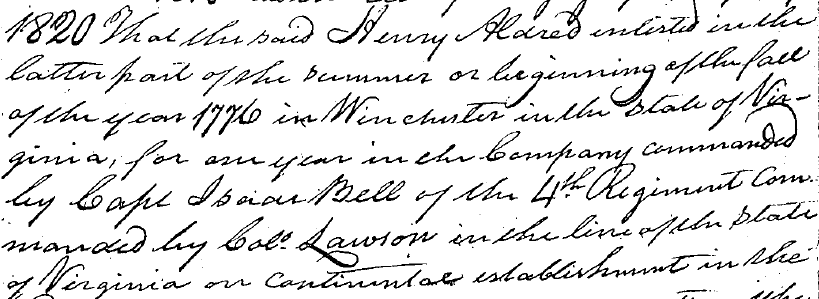 1820 That the said Henry Aldred enlisted in the
latter part of the summer or beginning of the fall
of the year 1776 in Winchester in the State of Vir-
ginia, for one year in the Company commanded
by Capt Isaac Bell of the 4th Regiment Com-
manded by Colo. Lawson in the line of the State
of Virginia on continental establishment in the